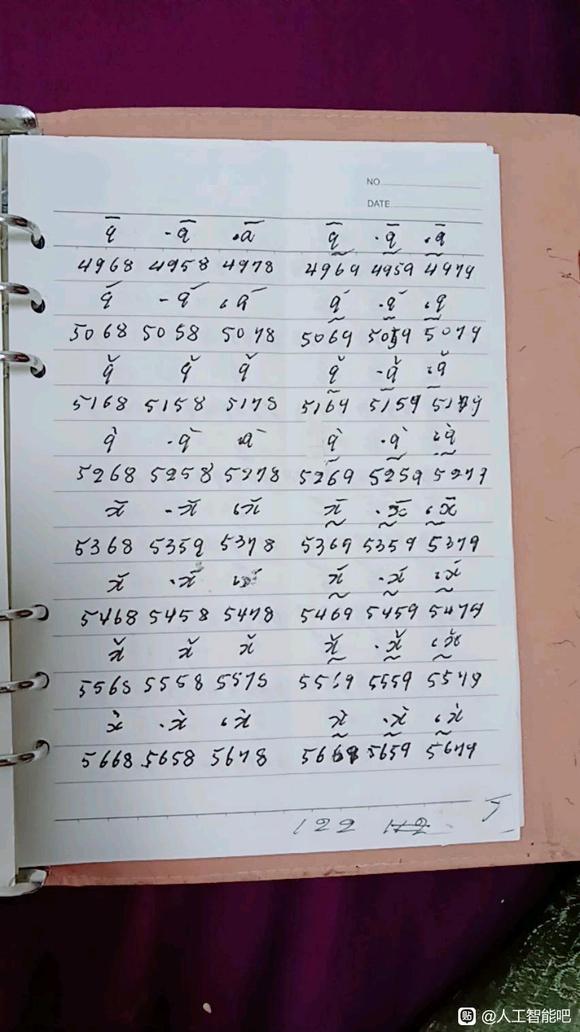 NO
DATE
q̄ -q̄ ·q̄ q̰̄ ·q̰̄ ·q̰̄
4968 4958 4978 4969 4959 4979
q́ -q́ ,q́ q̰́ ·q̰́ ,q̰́
5068 5058 5078 5069 5059 5079
q̌ q̌ q̌ q̰̌ -q̰̌ .q̰̌
5168 5158 5178 5169 5159 5179
q̀ -q̀ ·q̀ q̰̀ ·q̰̀ ,q̰̀
5268 5258 5278 5269 5259 5279
x̄ -x̄ ,x̄ x̰̄ ·x̰̄ ,x̰̄
5368 5359 5378 5369 5359 5379
x́ ·x́ x̰́ ·x̰́ ,x̰́
5468 5458 5478 5469 5459 5479
x̌ x̌ x̌ x̰̌ ·x̰̌ ,x̰̌
5568 5558 5578 5569 5559 5579
x̀ ·x̀ ,x̀ x̰̀ ·x̰̀ ,x̰̀
5668 5658 5678 5669 5659 5679
122
贴 @人工智能吧